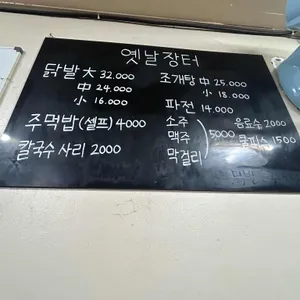 옛날장터
닭발 大 32.000
中 24.000
小 16.000
주먹밥(셀프) 4000
칼국수 사리 2000
조개탕 中 25.000
小 18.000
파전 14.000
소주
맥주 5000
막걸리
음료수 2000
쿨피스 1500